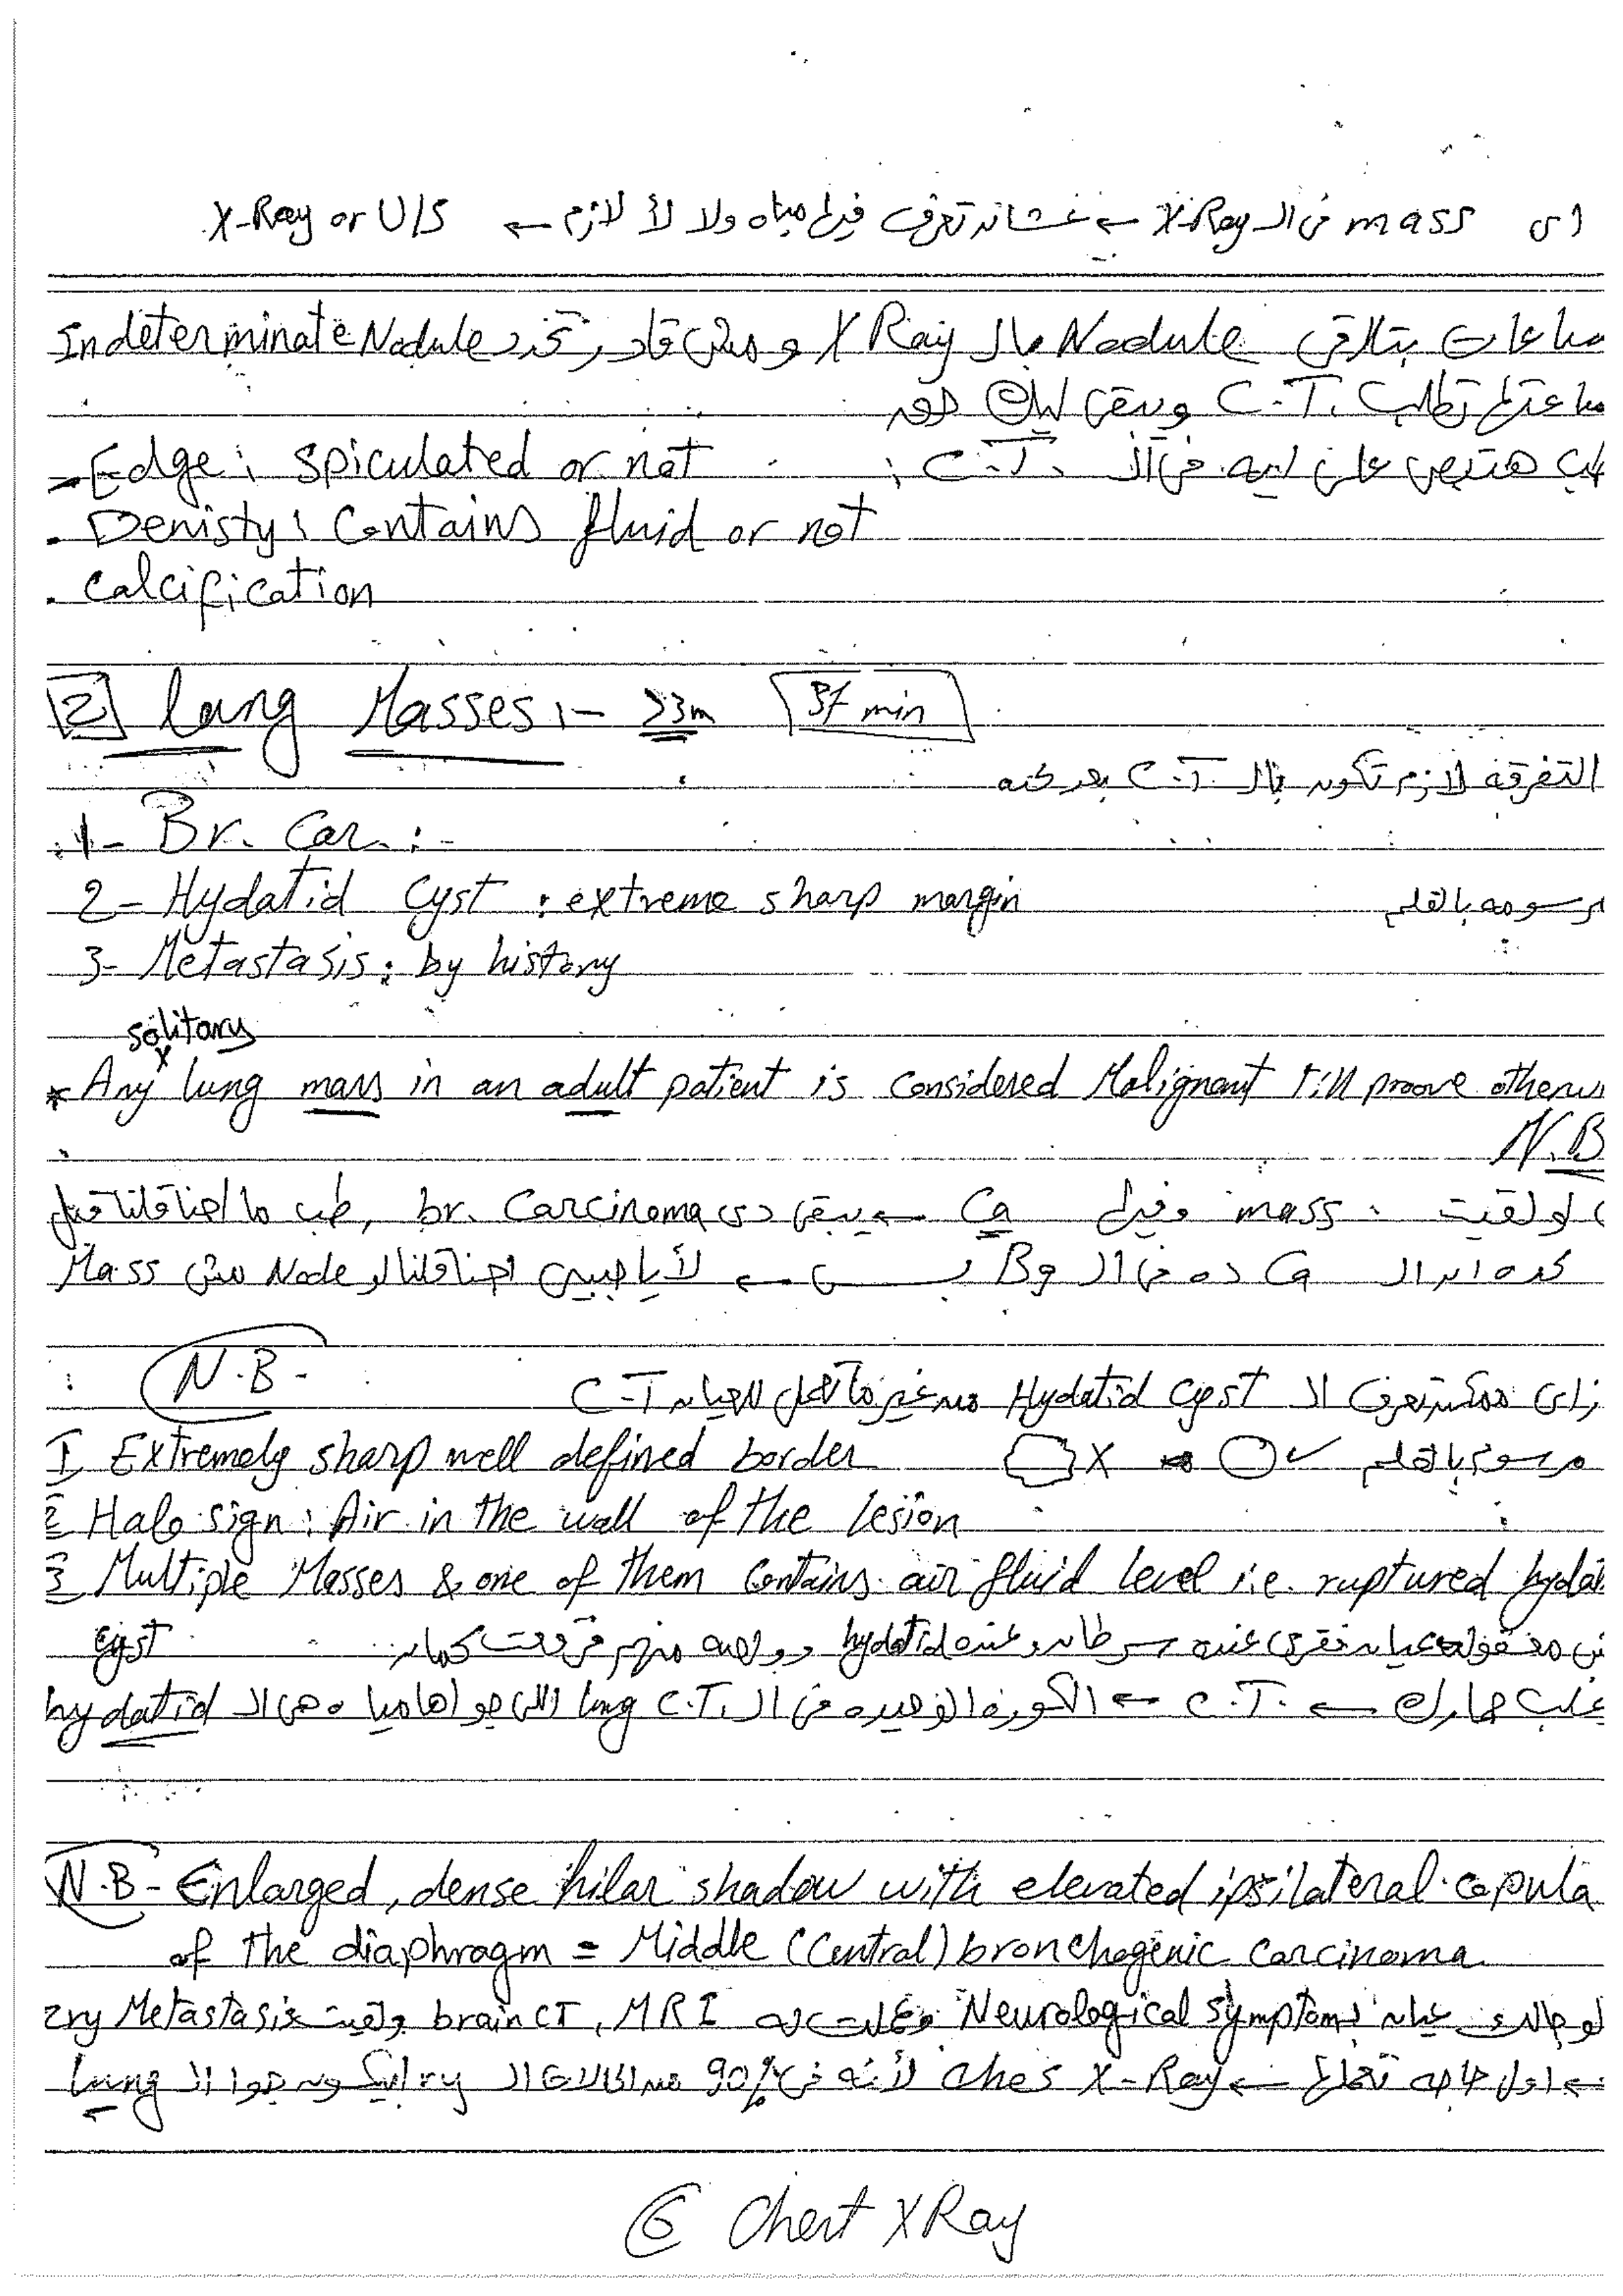 اى mass فى الـ X-Ray ← عشان تعرف فيها مياه ولا لأ لازم ← X-Ray or U/S
ساعات بتلاقى Nodule بالـ X Ray و مش قادر تحدد Indeterminate Nodule
ساعتها تطلب C.T. ويبقى ليك
هتبص على ايه فى الـ C.T. :
- Edge: spiculated or not
. Denisty: Contains fluid or not
. Calcification
2 Lung Masses :- >3m 37 min
التفرقة لازم تكون بالـ C.T. بعد كده
1- Br. Car. :-
2- Hydatid Cyst : extreme sharp margin مرسومه بالقلم
3- Metastasis: by history
solitary
* Any lung mass in an adult patient is considered Malignant till proove otherwis
N.B
لو لقيت mass وفيها Ca ← يبقى دى br. Carcinoma, طب ما احنا قلنا قبل
كده ان الـ Ca ده فى الـ بس ← لأ يا حبيبى احنا قلنا لو Node مش Mass
N.B-
ازاى ممكن تعرف الـ Hydatid cyst من غير ما تعمل للعيان C-T
1 Extremely sharp well defined border X مرسوم بالقلم
2 Halo sign: Air in the wall of the lesion
3 Multiple Masses & one of them Contains air fluid level i.e. ruptured hydat
cyst مش معقوله عيان عنده سرطان وعنده hydatid وواحده منهم فرقعت كمان
C.T. ← الكورة الوحيده فى الـ C.T. lung اللى جواها ميا هى الـ hydatid
N.B- Enlarged, dense hilar shadow with elevated ipsilateral copula
of the diaphragm = Middle (Central) bronchogenic carcinoma.
لو جالك عيان بـ Neurological symptom وعملت له brain CT, MRI ولقيت 2ry Metastasis
← اول حاجه تعملها ← Ches X-Ray لأنه فى 90% من الحالات الـ 1ry بيكون جوا الـ Lung
6 Chest X Ray